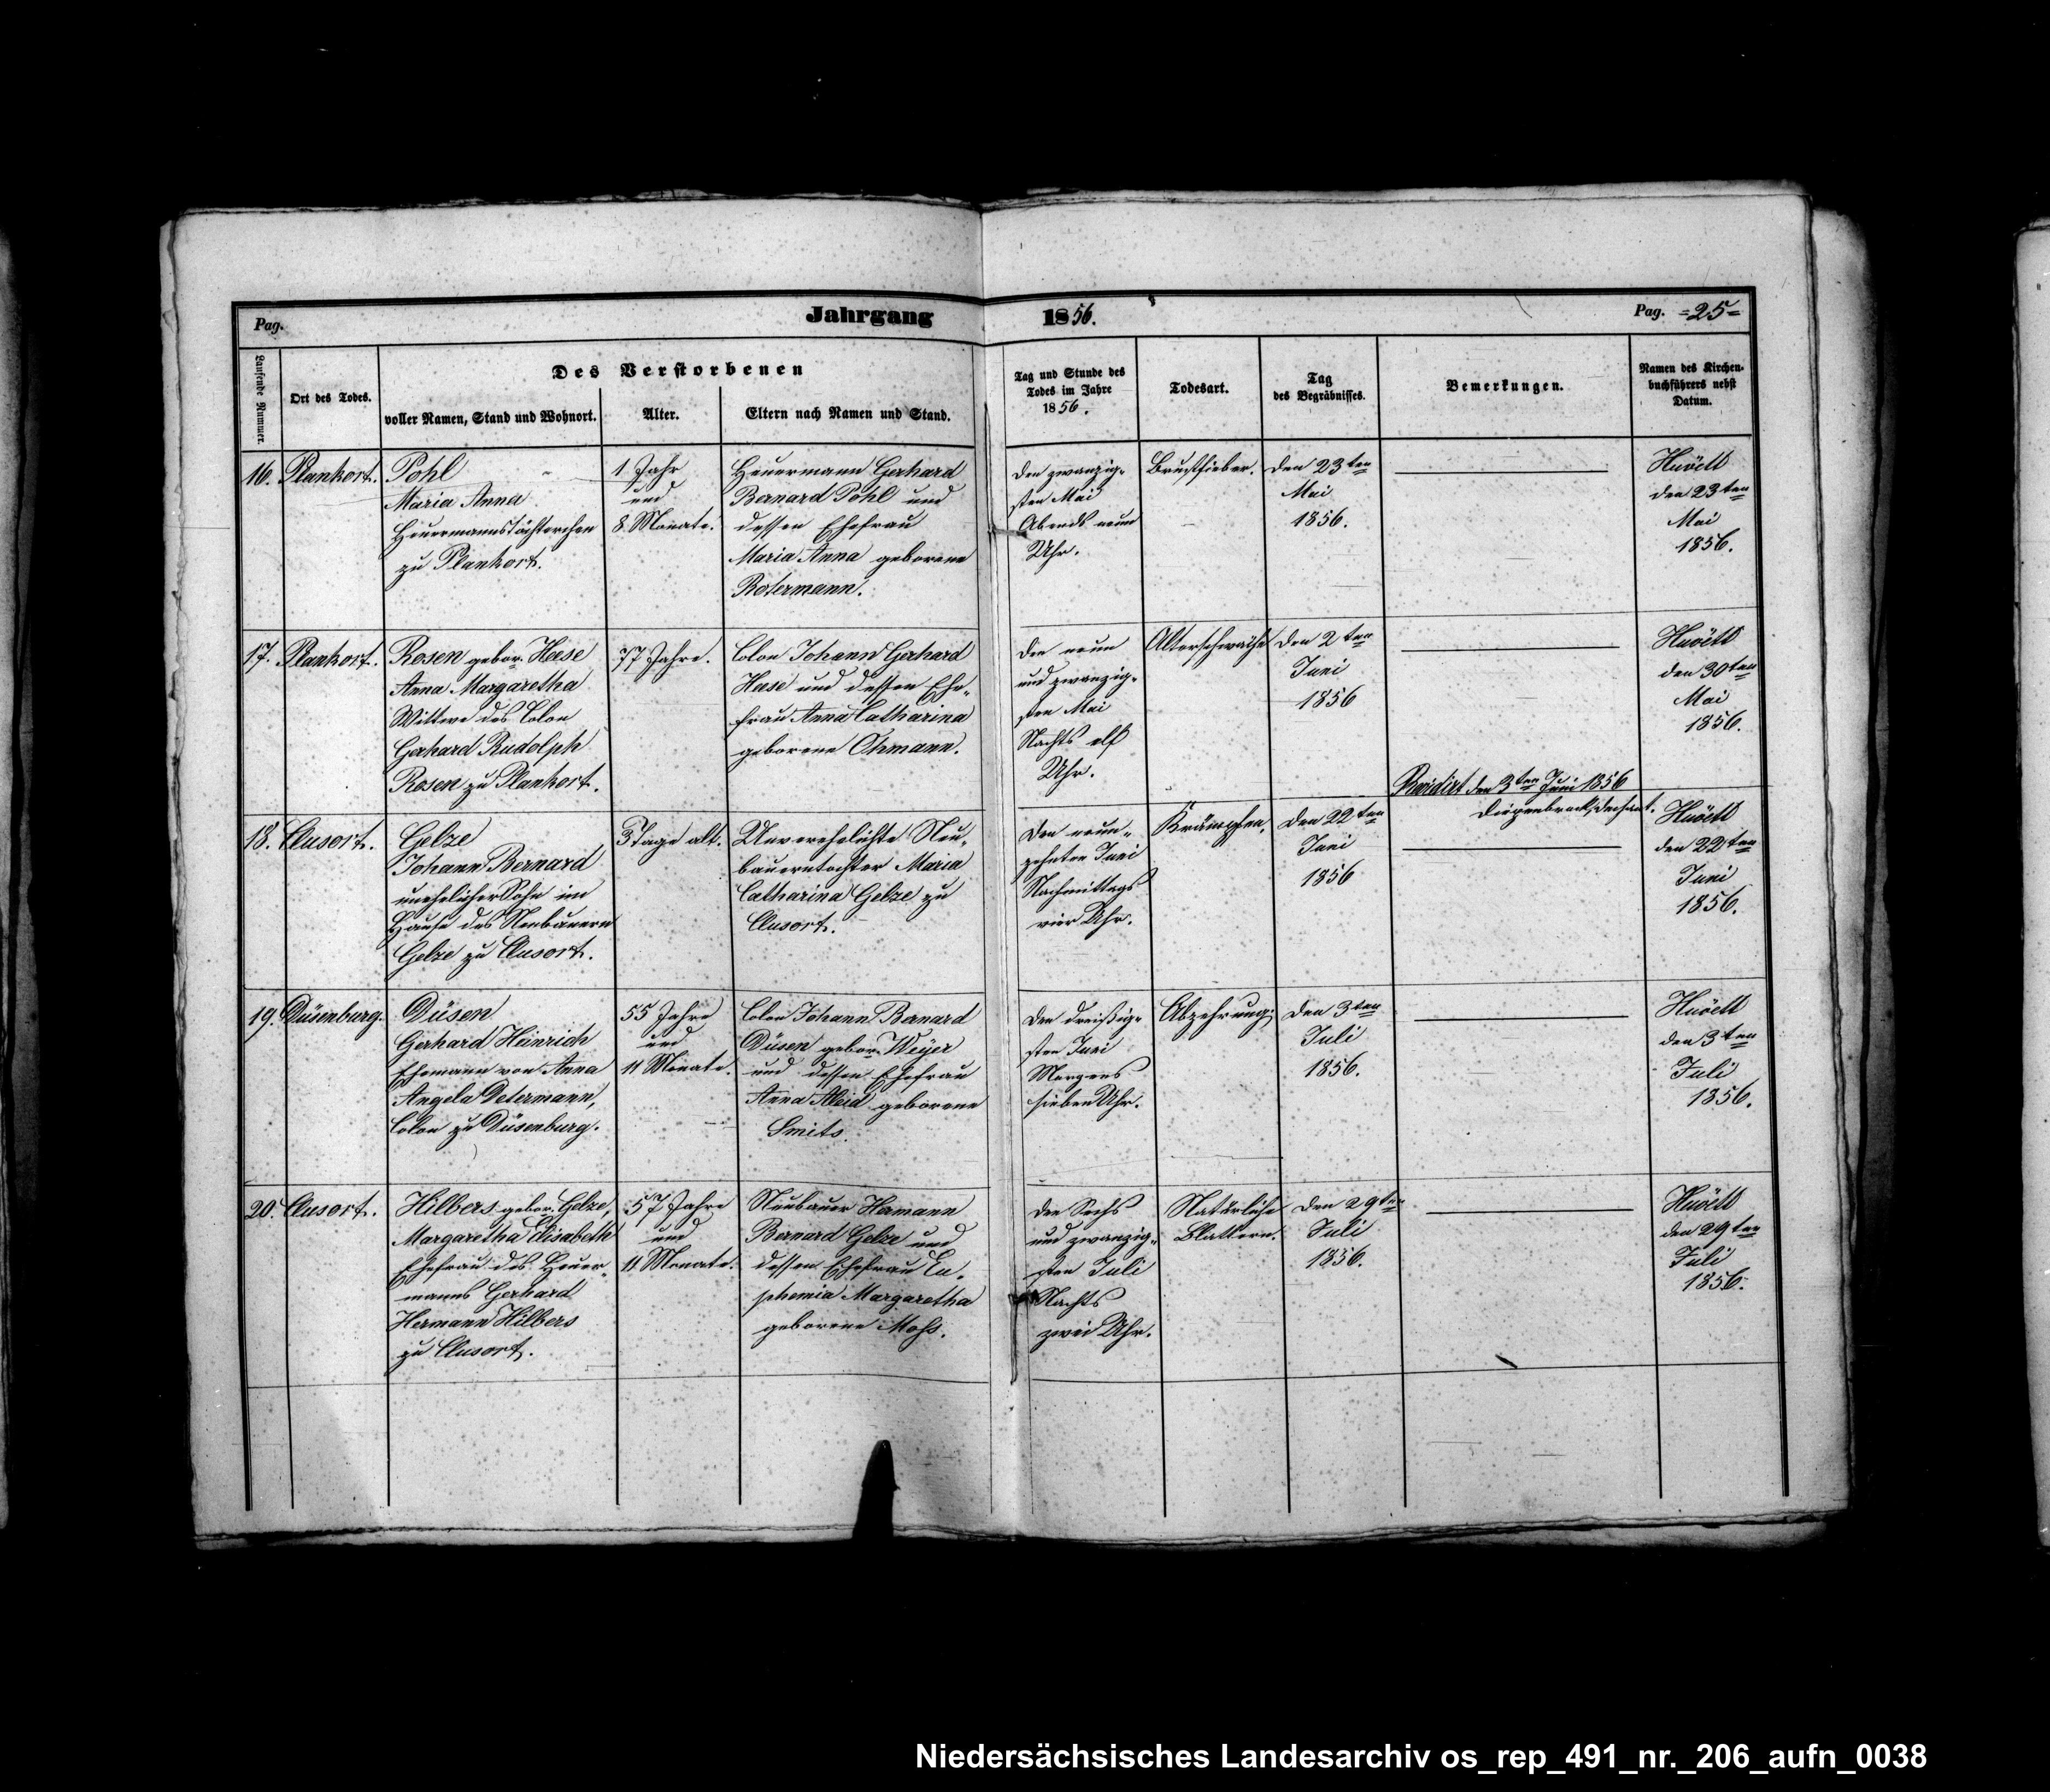 Pag.
Jahrgang 1856.
Pag. =25=
Laufende Nummer.
Ort des Todes.
Des Verstorbenen
voller Namen, Stand und Wohnort.
Alter.
Eltern nach Namen und Stand.
Tag und Stunde des
Todes im Jahre
1856.
Todesart.
Tag
des Begräbnisses.
Bemerkungen.
Namen des Kirchen-
buchführers nebst
Datum.
16.
Plankort.
Pohl
Maria Anna
Heuermannstöchterchen
zu Plankort.
1 Jahr
und
8. Monate.
Heuermann Gerhard
Bernard Pohl und
dessen Ehefrau
Maria Anna geborene
Rotermann.
Den zwanzig-
sten Mai
Abends neun
Uhr.
Brustfieber.
Den 23ten
Mai
1856.
Huöett
den 23ten
Mai
1856.
17.
Plankort.
Rosen gebor. Hese
Anna Margaretha
Wittwe des Colon
Gerhard Rudolph
Rosen zu Plankort.
77 Jahre.
Colon Johann Gerhard
Hese und dessen Ehe-
frau Anna Catharina
geborene Ohmann.
Den neun
und zwanzig-
sten Mai
Nachts elf
Uhr.
Altersschwäche
Den 2ten
Juni
1856
Huöett
den 30ten
Mai
1856.
Revidirt den 3ten Juni 1856
Diepenbrock, Dechant.
18.
Clusort.
Gelze
Johann Bernard
unehelicher Sohn im
Hause des Neubauern
Gelze zu Clusort.
3 Tage alt.
Unverehelichte Neu-
bauerntochter Maria
Catharina Gelze zu
Clusort.
Den neun-
zehnten Juni
Nachmittags
vier Uhr.
Krämpfen.
Den 22ten
Juni
1856
Huöett
den 22ten
Juni
1856.
19.
Düsenburg.
Düsen
Gerhard Heinrich
Ehemann von Anna
Angela Determann,
Colon zu Düsenburg.
55 Jahre
und
11 Monate.
Colon Johann Bernard
Düsen gebor. Weyer
und dessen Ehefrau
Anna Aleid geborene
Smits.
Den dreißig-
sten Juni
Morgens
sieben Uhr.
Abzehrung.
Den 3ten
Juli
1856.
Huöett
den 3ten
Juli
1856.
20.
Clusort.
Hilbers gebor. Gelze,
Margaretha Elisabeth
Ehefrau des Heuer-
manns Gerhard
Hermann Hilbers
zu Clusort.
57 Jahre
und
11 Monate.
Neubauer Hermann
Bernard Gelze und
dessen Ehefrau Eu-
phemia Margaretha
geborene Mohs.
Den Sechs
und zwanzig-
sten Juli
Nachts
zwei Uhr.
Natürliche
Blattern.
Den 29ten
Juli
1856.
Huöett
den 29ten
Juli
1856.
Niedersächsisches Landesarchiv os_rep_491_nr._206_aufn_0038